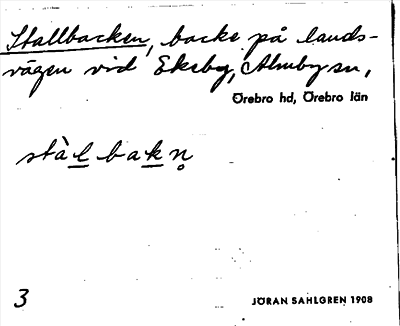 Stallbacken, backe på lands-
vägen vid Ekeby, Almby sn,
Örebro hd, Örebro län
stàl bakn̥
3
JÖRAN SAHLGREN 1908